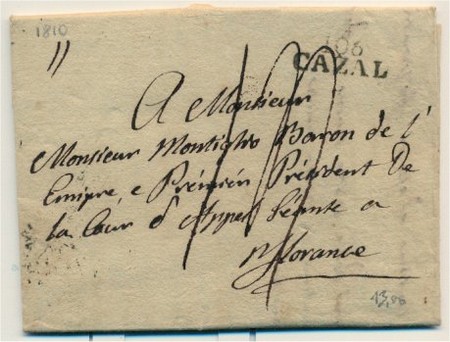 1810
106
CAZAL
A Monsieur
Monsieur Montiglio Baron de l'
Empire, e Prémiér Président De
la Cour d'Appel Séante a
Florance
13,00